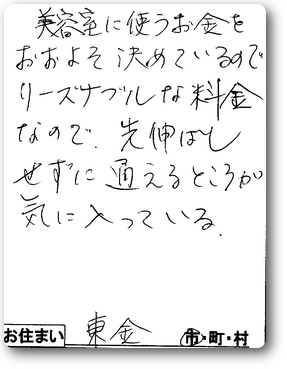 美容室に使うお金を
おおよそ決めているので
リーズナブルな料金
なので、先伸ばし
せずに通えるところが
気に入っている。
お住まい 東金 市・町・村